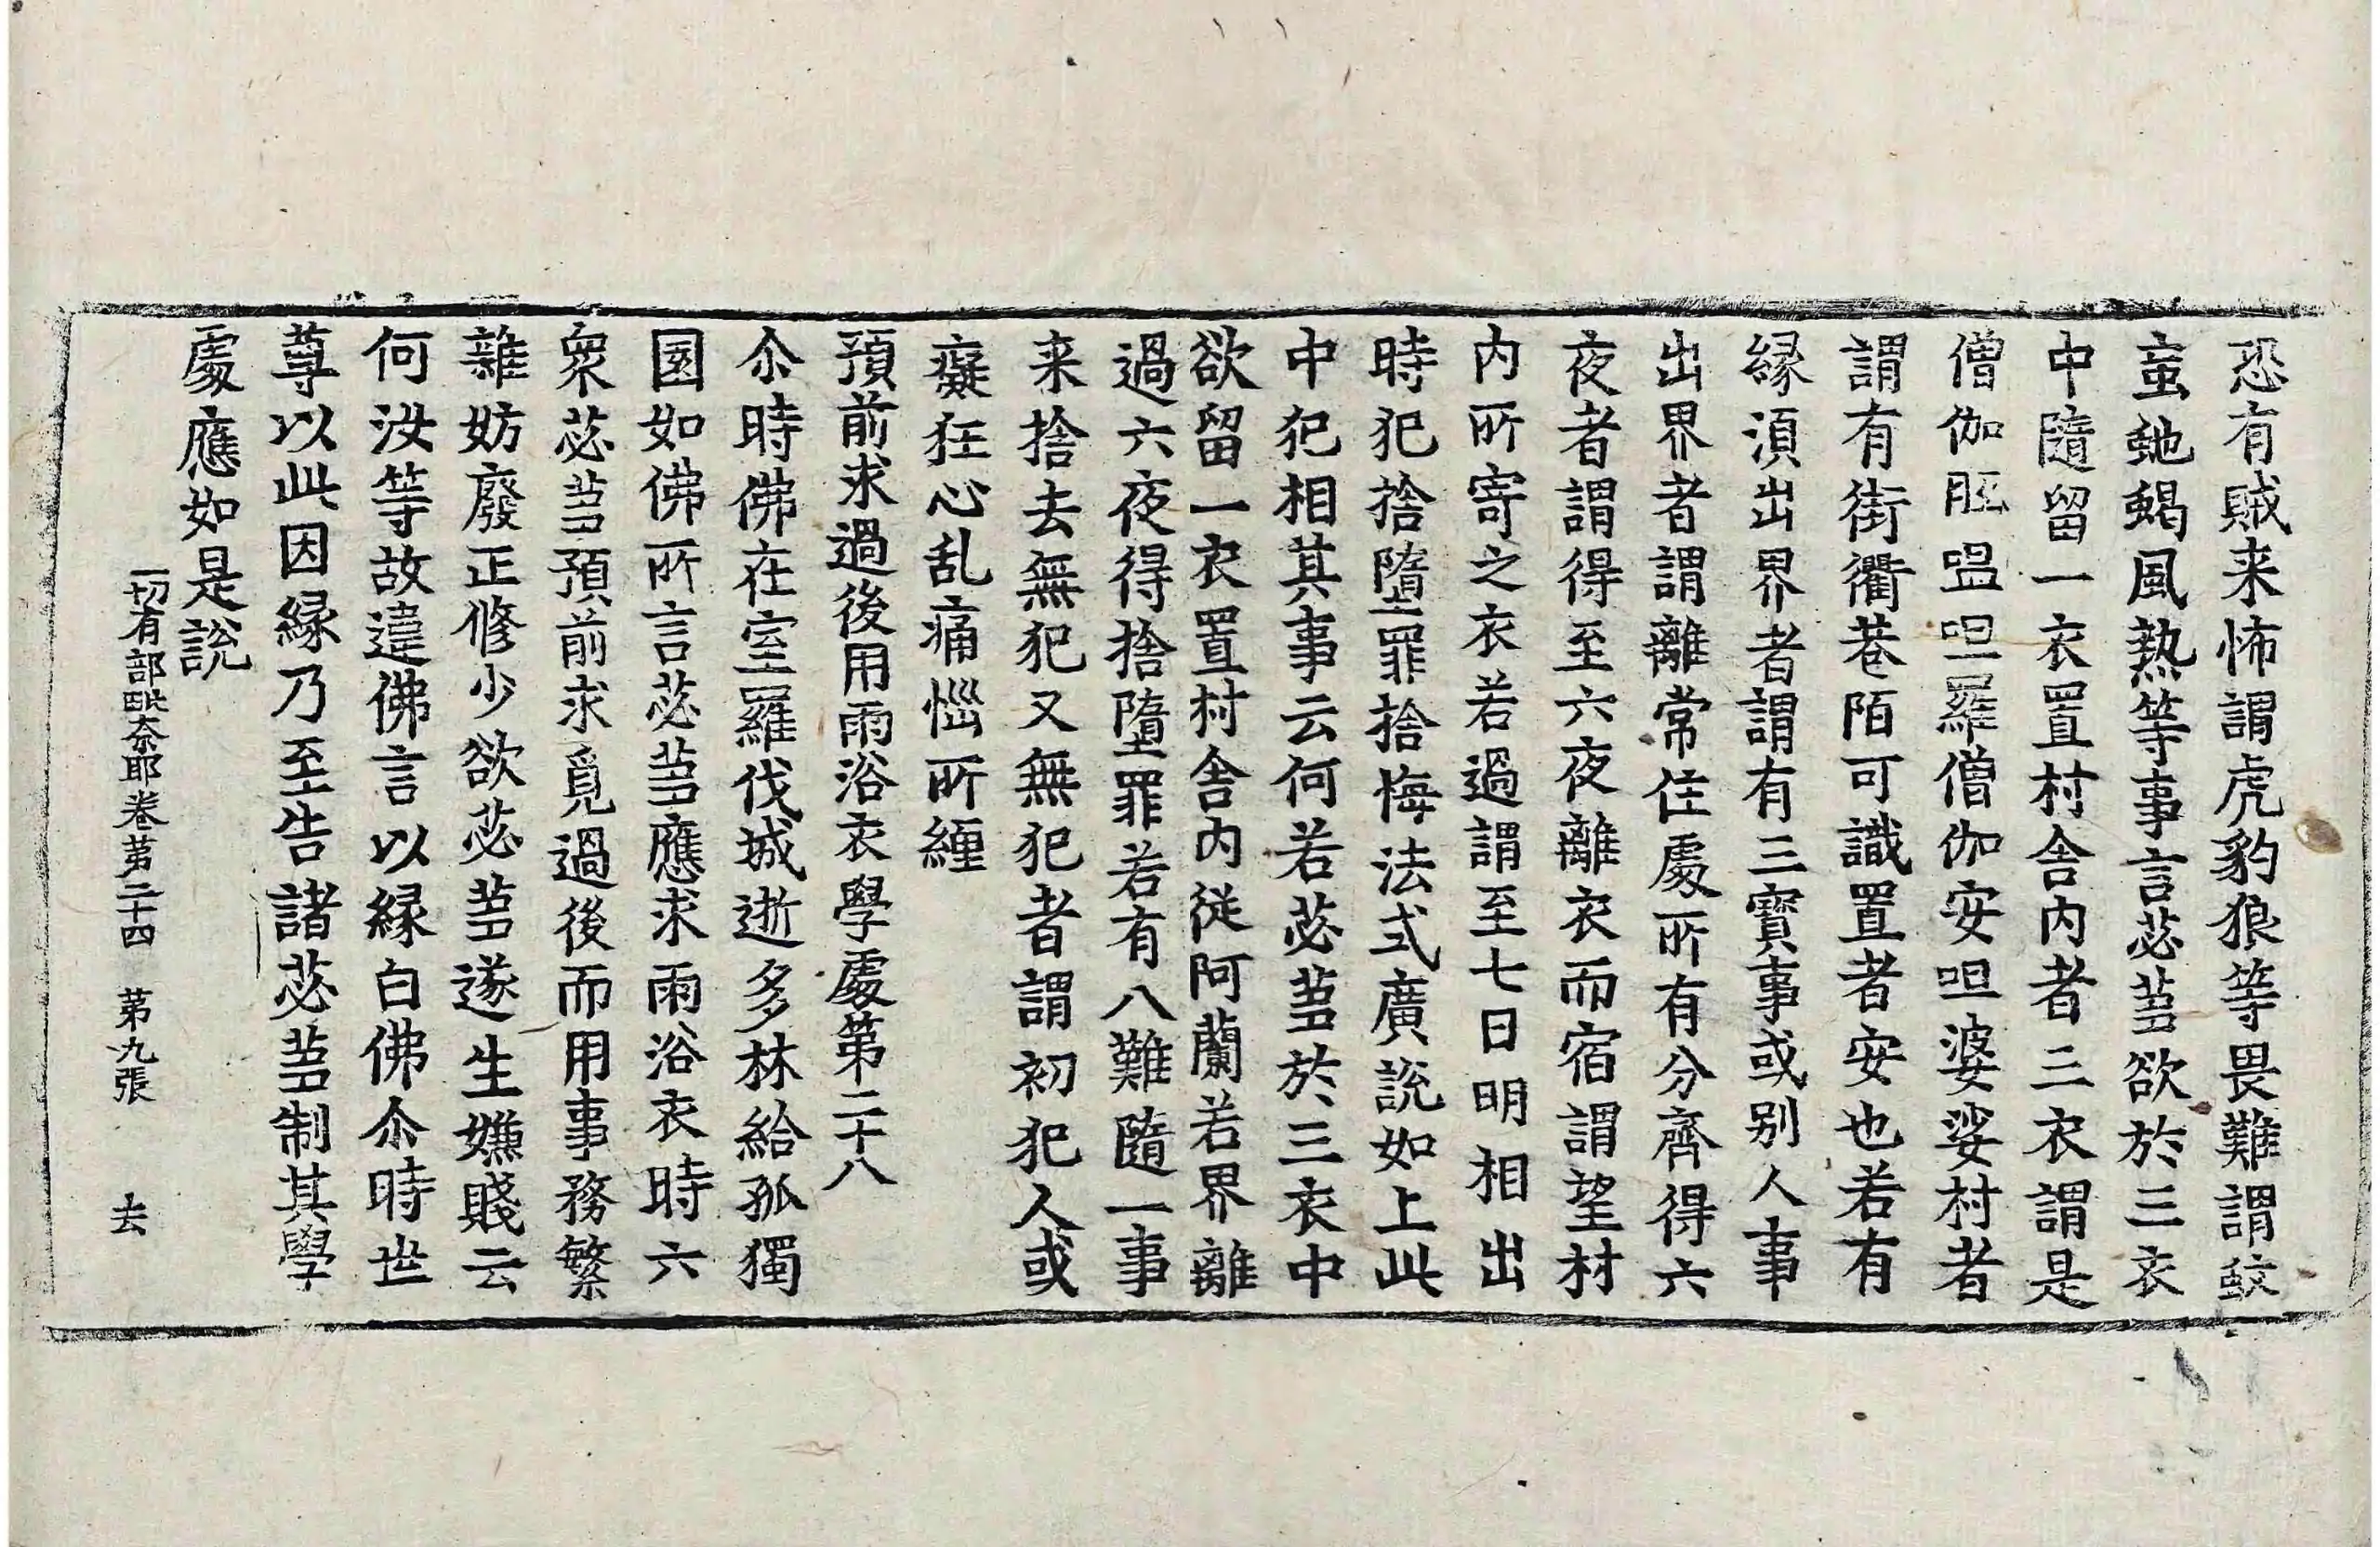 恐有賊来怖謂虎豹狼等畏難謂蚊
䖟虵蝎風熱等事言苾蒭欲於三衣
中隨留一衣置村舍内者三衣謂是
僧伽胝嗢呾羅僧伽安呾婆娑村者
謂有街衢巷陌可識置者安也若有
緣湏出界者謂有三寶事或别人事
出界者謂離常住處所有分齊得六
夜者謂得至六夜離衣而宿謂望村
内所寄之衣若過謂至七日明相出
時犯捨墮罪捨悔法式廣說如上此
中犯相其事云何若苾蒭於三衣中
欲留一衣置村舍内從阿蘭若界離
過六夜得捨墮罪若有八難隨一事
来捨去無犯又無犯者謂初犯人或
癡狂心乱痛惱所纏
預前求過後用雨浴衣學處第二十八
尒時佛在室羅伐城逝多林給孤獨
園如佛所言苾蒭應求雨浴衣時六
衆苾蒭預前求覓過後而用事務繁
雜妨廢正修少欲苾蒭遂生嫌賤云
何汝等故違佛言以緣白佛尒時世
尊以此因緣乃至告諸苾蒭制其學
處應如是說
一切有部毗奈耶卷苐二十四 苐九張 去